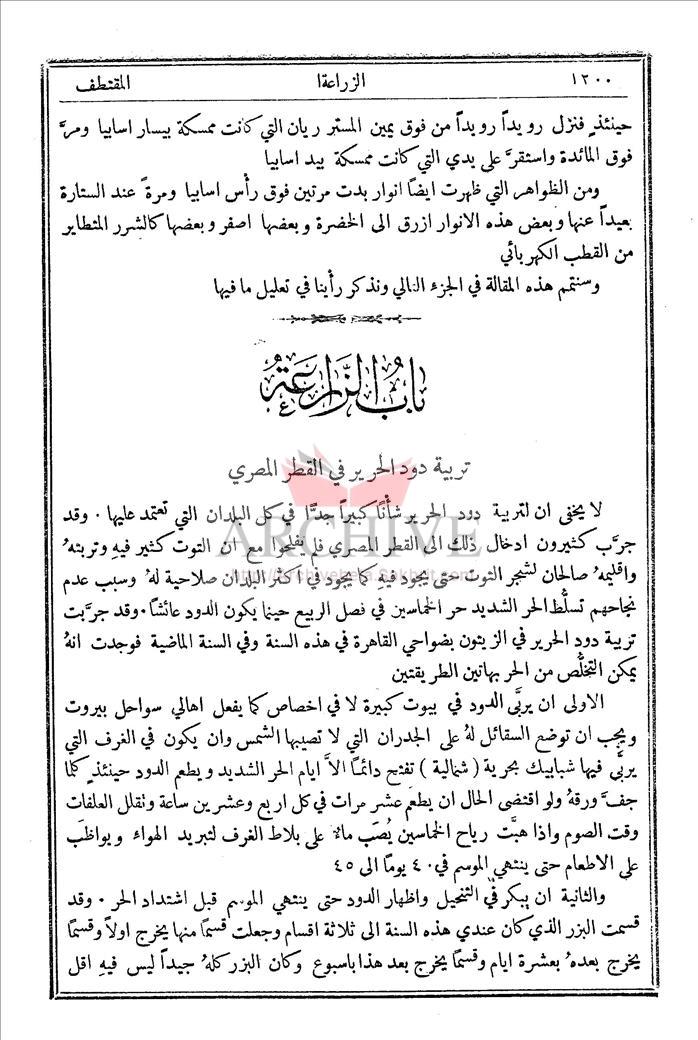 المقتطف الزراعةا ١٢٠٠
حينئذٍ فنزل رويداً رويداً من فوق يمين المستر ريان التي كانت ممسكة بيسار اسابيا ومرَّ
فوق المائدة واستقرَّ على يدي التي كانت ممسكة بيد اسابيا
ومن الظواهر التي ظهرت ايضاً انوار بدت مرتين فوق رأس اسابيا ومرة عند الستارة
بعيداً عنها وبعض هذه الانوار ازرق الى الخضرة وبعضها اصفر وبعضها كالشرر المتطاير
من القطب الكهربائي
وسنتمم هذه المقالة في الجزء التالي ونذكر رأينا في تعليل ما فيها
باب الزراعة
تربية دود الحرير في القطر المصري
لا يخفى ان لتربية دود الحرير شأنًا كبيراً جدًّا في كل البلدان التي تعتمد عليها . وقد
جرَّب كثيرون ادخال ذلك الى القطر المصري فلم يفلحوا مع ان التوت كثير فيهِ وتربتهُ
واقليمهُ صالحان لشجر التوت حتى يجود فيهِ كما يجود في اكثر البلدان صلاحية لهُ وسبب عدم
نجاحهم تسلُّط الحر الشديد حر الخماسين في فصل الربيع حينما يكون الدود عائشًا . وقد جرَّبت
تربية دود الحرير في الزيتون بضواحي القاهرة في هذه السنة وفي السنة الماضية فوجدت انهُ
يمكن التخلُّص من الحر بهاتين الطريقتين
الاولى ان يربَّى الدود في بيوت كبيرة لا في اخصاص كما يفعل اهالي سواحل بيروت
ويجب ان توضع السقائل لهُ على الجدران التي لا تصيبها الشمس وان يكون في الغرف التي
يربَّى فيها شبابيك بحرية ( شمالية ) تفتح دائمًا الاَّ ايام الحر الشديد ويطعم الدود حينئذٍ كلما
جفَّ ورقهُ ولو اقتضى الحال ان يطعم عشر مرات في كل اربع وعشرين ساعة وتقلل العلفات
وقت الصوم واذا هبَّت رياح الخماسين يُصَب ماء على بلاط الغرف لتبريد الهواء ويواظَب
على الاطعام حتى ينتهي الموسم في ٤٠ يومًا الى ٤٥
والثانية ان يبكر في التنحيل واظهار الدود حتى ينتهي الموسم قبل اشتداد الحر . وقد
قسمت البزر الذي كان عندي هذه السنة الى ثلاثة اقسام وجعلت قسمًا منها يخرج اولاً وقسمًا
يخرج بعدهُ بعشرة ايام وقسمًا يخرج بعد هذا باسبوع وكان البزر كلهُ جيداً ليس فيهِ اقل
ARCHIVE